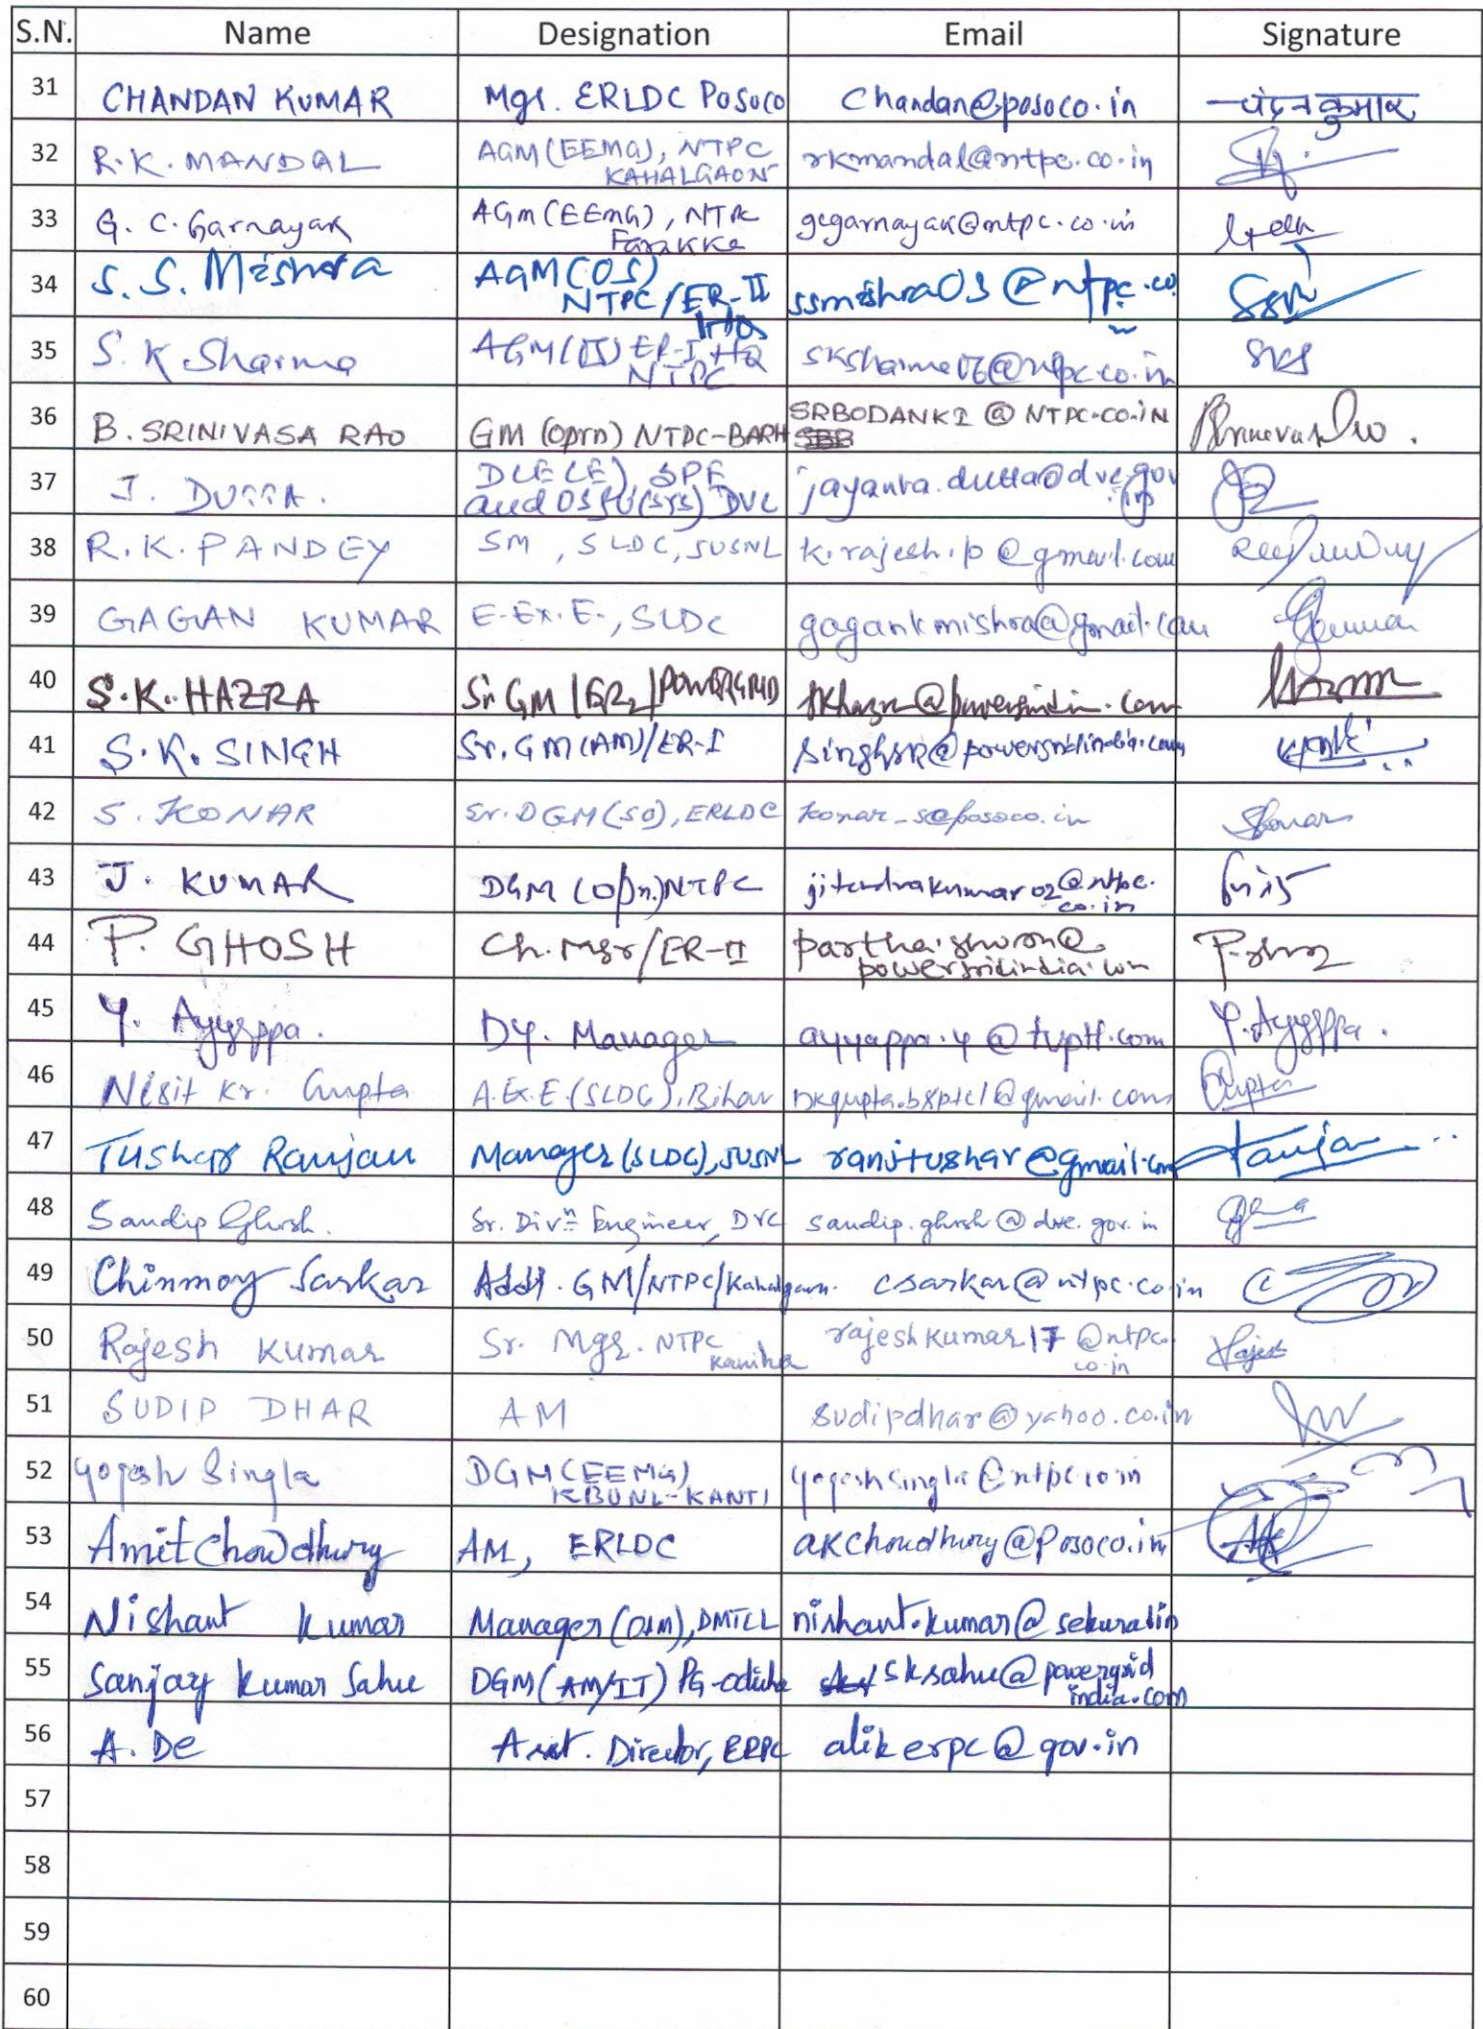 S.N. Name Designation Email Signature
31 CHANDAN KUMAR Mgr. ERLDC POSOCO Chandan@posoco.in चंदन कुमार
32 R.K. MANDAL AGM(EEMG), NTPC KAHALGAON rkmandal@ntpc.co.in
33 G. C. Garnayak AGM(EEMG), NTPC Farakka gcgarnayak@ntpc.co.in
34 S. S. Mishra AGM(OS) NTPC/ER-II HQ ssmishra03@ntpc.co SSM
35 S. K. Sharma AGM(OS) ER-I, HQ NTPC sksharma06@ntpc.co.in SKS
36 B. SRINIVASA RAO GM (Oprn) NTPC-BARH SRBODANKI@NTPC.CO.IN
37 J. DUTTA. DCE(E), SPE and DVC jayanta.dutta@dvc.gov.in
38 R.K. PANDEY SM, SLDC, JUSNL k.rajesh.p@gmail.com
39 GAGAN KUMAR E.Ex.E., SLDC gagankmishra@gmail.com
40 S.K. HAZRA Sr GM/ER2/POWERGRID skhazra@powergridindia.com
41 S.K. SINGH Sr. GM(AM)/ER-I singhsk@powergridindia.com
42 S. KONAR Sr. DGM(SO), ERLDC konar_s@posoco.in Skonar
43 J. KUMAR DGM (Opn.) NTPC jitendrakumar02@ntpc.co.in
44 P. GHOSH Ch. Mgr/ER-II partha.ghosh@powergridindia.com
45 Y. Ayyappa. Dy. Manager ayyappa.y@tvptl.com Y. Ayyappa.
46 Nisit Kr. Gupta A.Ex.E.(SLDC), Bihar nkgupta.bsptcl@gmail.com Gupta
47 Tushar Ranjan Manager(SLDC), JUSNL ranjtushar@gmail.com
48 Sandip Ghosh. Sr. Divn Engineer, DVC sandip.ghosh@dvc.gov.in
49 Chinmoy Sarkar Addl. GM/NTPC/Kahalgaon. csarkar@ntpc.co.in
50 Rajesh Kumar Sr. Mgr. NTPC Kaniha rajeshkumar17@ntpc.co.in Rajesh
51 SUDIP DHAR AM sudipdhar@yahoo.co.in
52 Yogesh Singla DGM(EEMG) KBUNL-KANTI yogeshsingla@ntpc.co.in
53 Amit Chowdhury AM, ERLDC akchoudhury@posoco.in
54 Nishant Kumar Manager (O&M), DMTCL nishant.kumar@sekura.in
55 Sanjay Kumar Sahu DGM(AM/IT) PG-odisha sksahu@powergridindia.com
56 A. De Asst. Director, ERPC alikerpc@gov.in
57
58
59
60